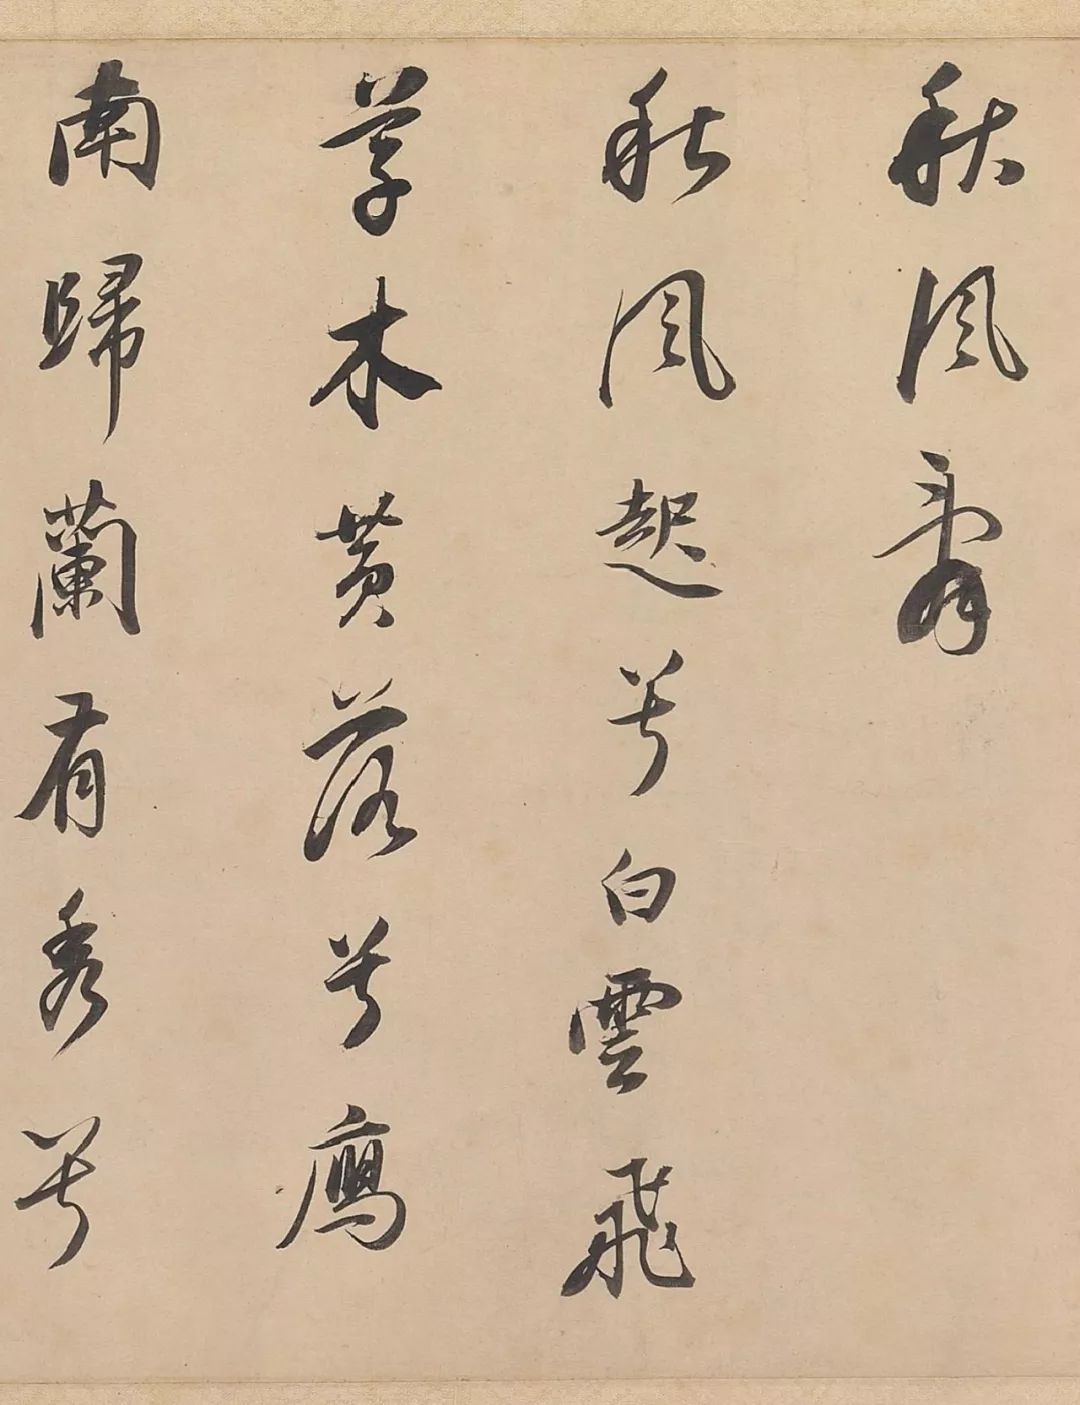 秋風辭
秋風起兮白雲飛
草木黄落兮鴈
南歸蘭有秀兮